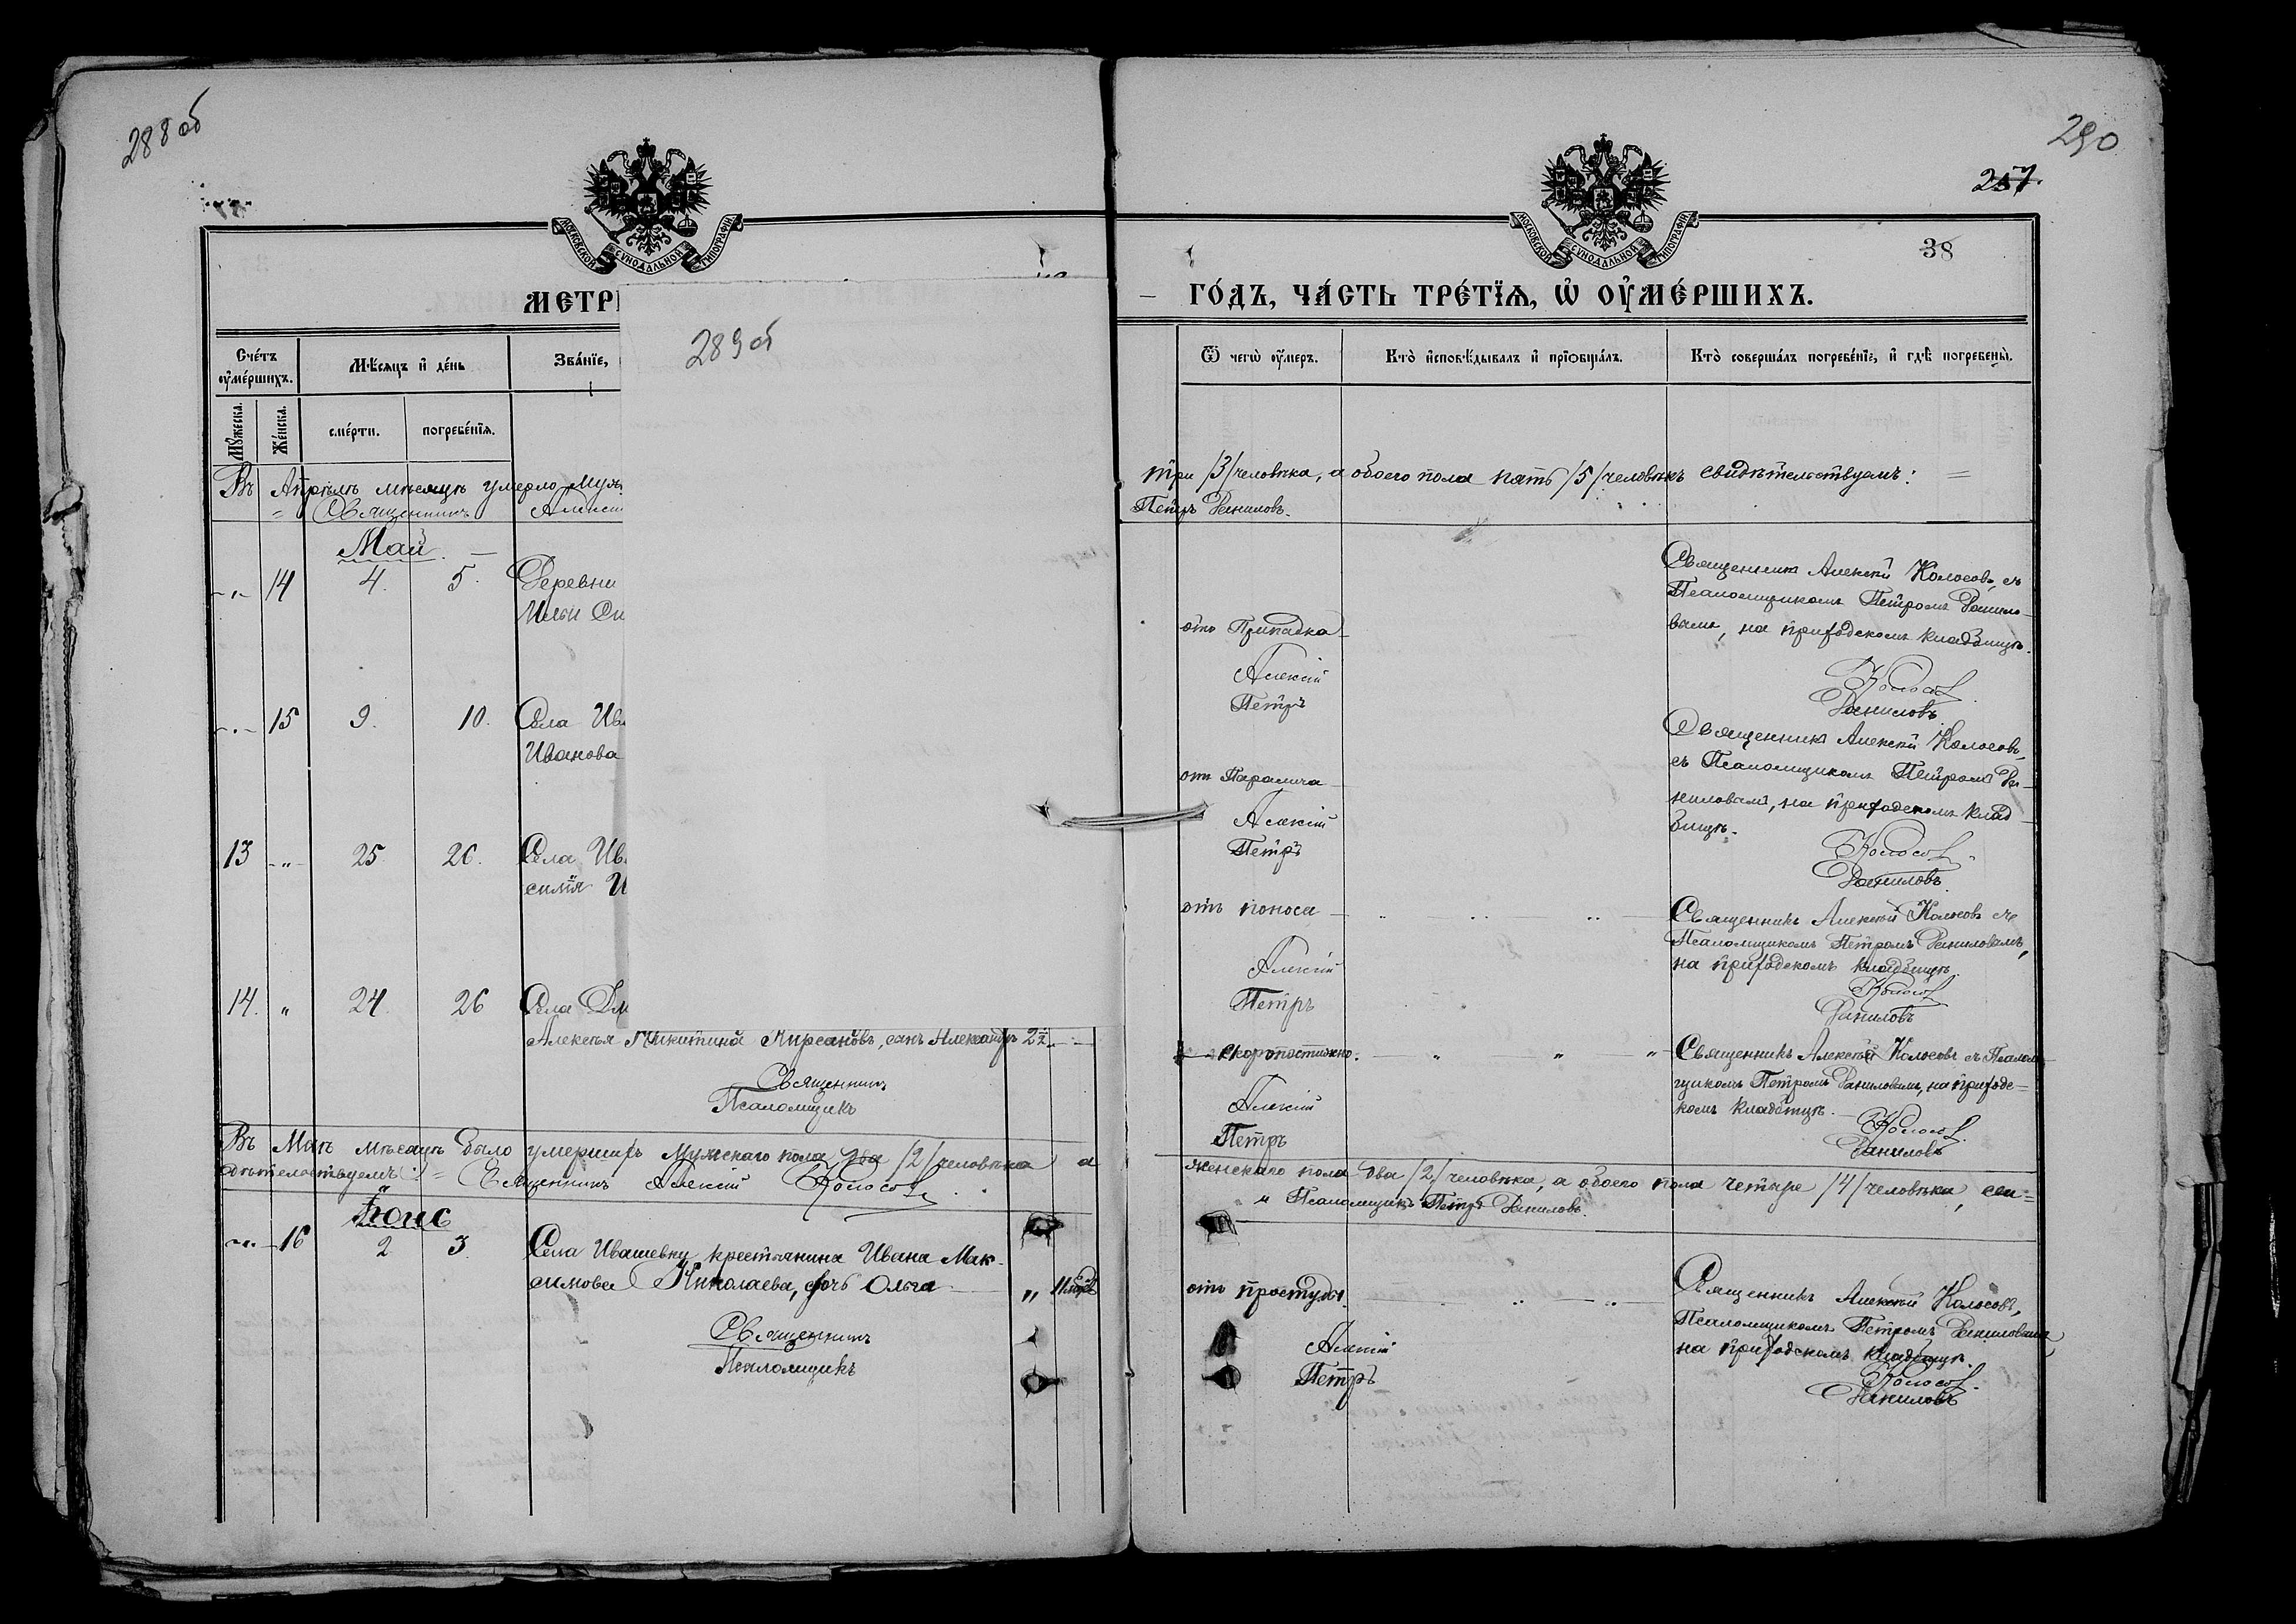 288 об
290
257.
38
МОСКОВСКОЙ СУНОДАЛЬНОЙ ТИПОГРАФІИ
МОСКОВСКОЙ СУНОДАЛЬНОЙ ТИПОГРАФІИ
МЕТРИ
289 об
Счéтъ ᲂу҆мéршихъ.
Мѣ́сяцъ и҆ дéнь
Звáнїе,
Мꙋ́жеска.
Жéнска.
смéрти.
погребéнїѧ.
Въ Апрѣлѣ мѣсяцѣ умерло муж
= Священникъ Алексі
Май. —
-"- 14 4. 5. Деревни
Ильи
-"- 15 9. 10. Села Ив
Иванова
13 -"- 25 26. Села Ив
силія И
14. " 24. 26 Села Дм
Алексѣя Никитина Кирсановъ, сынъ Александръ 2½
Священникъ
Псаломщикъ
Въ Маѣ мѣсяцѣ было умершихъ мужскаго пола два /2/ человѣка а
дѣтельствуемъ: = Священникъ Алексій Колосов
Іюнь
-"- 16 2 3. Села Ивашевки крестьянина Ивана Мак-
симова Николаева, дочь Ольга " 11 мѣс
Священникъ
Псаломщикъ
— ГО́ДЪ, ЧА́СТЬ ТРЕ́ТЇѦ, Ѽ ОУ҆МЕ́РШИХЪ.
Ѿ чегѡ̀ ᲂу҆́меръ.
Ктò и҆сповѣ́дывалъ и҆ прїѻбщáлъ.
Ктò совершáлъ погребéнїе, и҆ гдѣ̀ погребены̀.
три /3/ человѣка, а обоего пола пять /5/ человѣкъ свидѣтельствуемъ: =
Петръ Даниловъ.
отъ Припадка
Алексій
Петръ
Священникъ Алексій Колосовъ, съ
Псаломщикомъ Петромъ Данило-
вымъ, на приходскомъ кладбищѣ.
Колосов
Даниловъ
отъ Паралича
Алексій
Петръ
Священникъ Алексій Колосовъ,
съ Псаломщикомъ Петромъ Да-
ниловымъ, на приходскомъ клад-
бищѣ.
Колосов
Даниловъ.
отъ поноса
Алексій
Петръ
Священникъ Алексѣй Колосовъ съ
Псаломщикомъ Петромъ Даниловымъ,
на приходскомъ кладбищѣ.
Колосов
Даниловъ
скоропостижно.
Алексій
Петръ
Священникъ Алексѣй Колосовъ съ Псалом-
щикомъ Петромъ Даниловымъ, на приход-
скомъ кладбищѣ.
Колосов
Даниловъ
женскаго пола два /2/ человѣка, а обоего пола четыре /4/ человѣка, сви=
и Псаломщикъ Петръ Даниловъ.
отъ простуды.
Алексій
Петръ
Священникъ Алексій Колосовъ,
Псаломщикомъ Петромъ Даниловымъ,
на приходскомъ кладбищѣ.
Колосов
Даниловъ